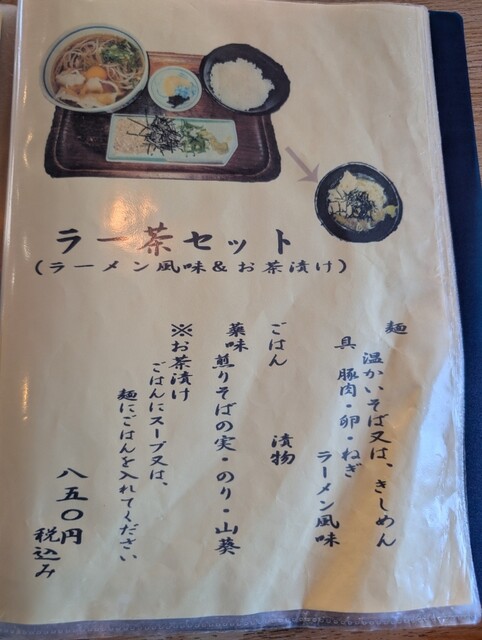 ラー茶セット
(ラーメン風味&お茶漬け)
麺　温かいそば又は、きしめん
具　豚肉・卵・ねぎ
ラーメン風味
ごはん　漬物
薬味　煎りそばの実・のり・山葵
※お茶漬け
ごはんにスープ又は、
麺にごはんを入れてください
八五〇円
税込み